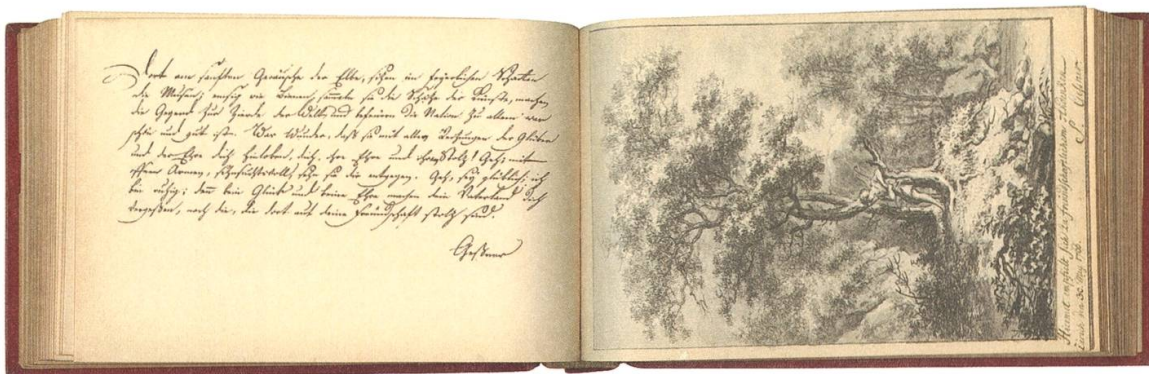 Dort am sanften Geräusche der Elbe, sizen im feyerlichen Schatten
die Musen; emsig wie Bienen, sammeln sie die Schäze der Künste, machen
die Gegend zur Zierde der Welt, und befeuren die Nation zu allem was
schön und gut ist. Was Wunder, daß sie mit allen Reizungen des Glükes
und der Ehre dich hinloken, dich, ihre Ehre und ihren Stolz! Geh; mit
offnen Armen, sehnsuchtsvoll, sehn sie dir entgegen. Geh, sey glüklich; ich
bin ruhig; denn kein Glük und keine Ehre machen dein Vaterland dich
vergeßen, noch die, die dort auf deine Freundschaft stolz sind.
Geßner
Hiermit empfiehlt sich zu freundschaftlichem
Zürich den 30. May